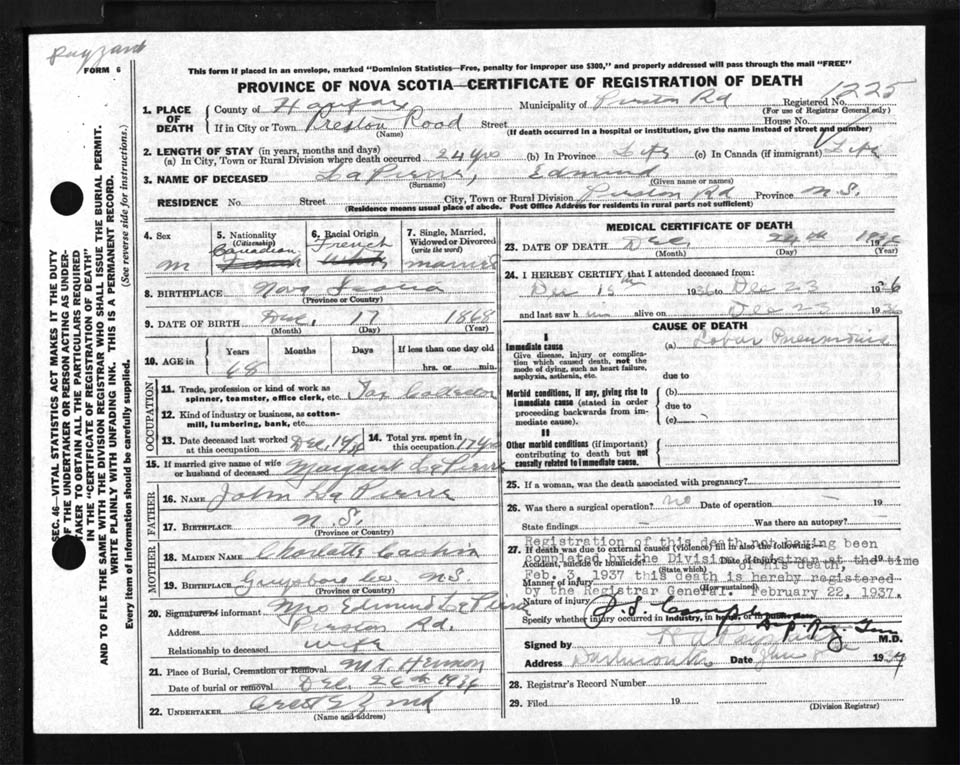 FORM 6
This form if placed in an envelope, marked "Dominion Statistics—Free, penalty for improper use $300," and properly addressed will pass through the mail "FREE"
PROVINCE OF NOVA SCOTIA—CERTIFICATE OF REGISTRATION OF DEATH
1225
1. PLACE OF DEATH
County of Halifax Municipality of Preston Rd Registered No.
(For use of Registrar General only)
If in City or Town Preston Road Street House No.
(Name) (If death occurred in a hospital or institution, give the name instead of street and number)
2. LENGTH OF STAY (in years, months and days)
(a) In City, Town or Rural Division where death occurred 24 yrs (b) In Province Life (c) In Canada (if immigrant) Life
3. NAME OF DECEASED LaPierre, Edmund
(Surname) (Given name or names)
RESIDENCE No. Street City, Town or Rural Division Preston Rd Province N.S.
(Residence means usual place of abode. Post Office Address for residents in rural parts not sufficient)
4. Sex
M
5. Nationality
(Citizenship)
Canadian
French
6. Racial Origin
French
White
7. Single, Married, Widowed or Divorced
(write the word)
married
8. BIRTHPLACE Nova Scotia
(Province or Country)
9. DATE OF BIRTH Dec. 17 1868
(Month) (Day) (Year)
10. AGE in
Years Months Days If less than one day old
68 hrs. or min.
OCCUPATION
11. Trade, profession or kind of work as spinner, teamster, office clerk, etc. Tax Collector
12. Kind of industry or business, as cotton-mill, lumbering, bank, etc.
13. Date deceased last worked at this occupation Dec. 14/36
14. Total yrs. spent in this occupation 17 yrs
15. If married give name of wife or husband of deceased Margaret LaPierre
FATHER
16. NAME John LaPierre
17. BIRTHPLACE N.S.
(Province or Country)
MOTHER
18. MAIDEN NAME Charlotte Cashin
19. BIRTHPLACE Guysboro Co. N.S
(Province or Country)
20. Signature of informant Mrs Edmund LaPierre
Address Preston Rd.
Relationship to deceased wife
21. Place of Burial, Cremation or Removal Mt Hermon
Date of burial or removal Dec. 26th 1936
22. UNDERTAKER
(Name and address)
MEDICAL CERTIFICATE OF DEATH
23. DATE OF DEATH Dec. 24th 1936
(Month) (Day) (Year)
24. I HEREBY CERTIFY that I attended deceased from:
Dec 15th 1936 to Dec 23 1936
and last saw him alive on Dec 23 19
CAUSE OF DEATH
I
Immediate cause
Give disease, injury or complication which caused death, not the mode of dying, such as heart failure, asphyxia, asthenia, etc.
(a) Lobar Pneumonia
due to
Morbid conditions, if any, giving rise to immediate cause (stated in order proceeding backwards from immediate cause).
(b)
due to
(c)
II
Other morbid conditions (if important) contributing to death but not causally related to immediate cause.
25. If a woman, was the death associated with pregnancy?
26. Was there a surgical operation? no Date of operation — 19
State findings — Was there an autopsy? —
27. If death was due to external causes (violence) fill in also the following:
Accident, suicide or homicide? Date of injury
(State which)
Manner of injury
(How sustained)
Nature of injury
Specify whether injury occurred in industry, in home, or in public place
Registration of this death not having been
completed by the Division Registrar at the time
of his death,
Feb. 3, 1937 this death is hereby registered
by the Registrar General. February 22, 1937.
Signed by M.D.
Address Dartmouth Date 1937
28. Registrar's Record Number
29. Filed 19
(Division Registrar)
SEC. 46—VITAL STATISTICS ACT MAKES IT THE DUTY
OF THE UNDERTAKER OR PERSON ACTING AS UNDER-
TAKER TO OBTAIN ALL THE PARTICULARS REQUIRED
IN THE "CERTIFICATE OF REGISTRATION OF DEATH"
AND TO FILE THE SAME WITH THE DIVISION REGISTRAR WHO SHALL ISSUE THE BURIAL PERMIT.
WRITE PLAINLY WITH UNFADING INK. THIS IS A PERMANENT RECORD.
Every item of Information should be carefully supplied. (See reverse side for instructions.)